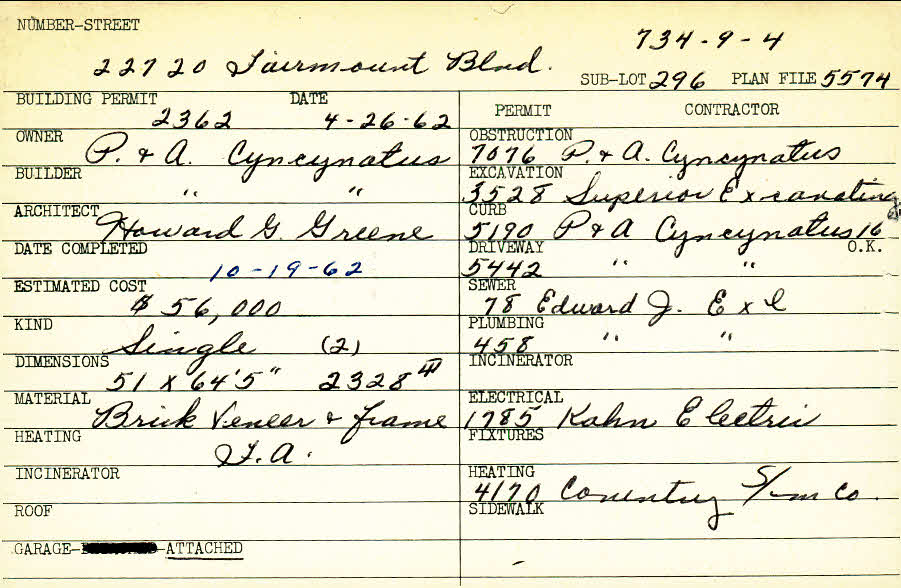 NUMBER-STREET
734-9-4
22720 Fairmount Blvd.
SUB-LOT 296 PLAN FILE 5574
BUILDING PERMIT DATE
2362 4-26-62
OWNER P. & A. Cyncynatus
BUILDER " "
ARCHITECT Howard G. Greene
DATE COMPLETED
10-19-62
ESTIMATED COST
$ 56,000
KIND
Single (2)
DIMENSIONS
51 x 64'5" 2328
MATERIAL Brick Veneer & frame
HEATING
F.A.
INCINERATOR
ROOF
GARAGE- -ATTACHED
PERMIT CONTRACTOR
OBSTRUCTION
7076 P. & A. Cyncynatus
EXCAVATION
3528 Superior Excavating
CURB
5190 P & A Cyncynatus 16
DRIVEWAY O.K.
5442 " "
SEWER
78 Edward J. Exl
PLUMBING
458 " "
INCINERATOR
ELECTRICAL
1785 Kahn Electric
FIXTURES
HEATING
4170 Coventry S/m Co.
SIDEWALK